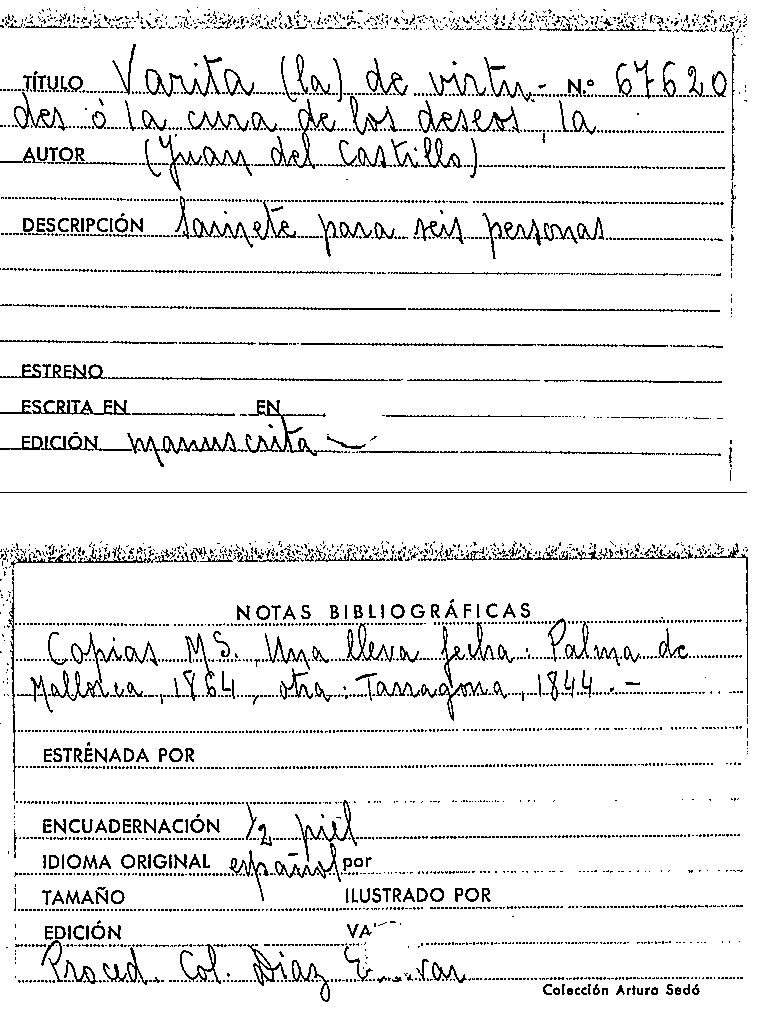 TÍTULO Varita (la) de virtu- N.º 67620
des ó la cura de los deseos, la
AUTOR (Juan del Castillo)
DESCRIPCIÓN Sainete para seis personas
ESTRENO
ESCRITA EN EN
EDICIÓN manuscrita
NOTAS BIBLIOGRÁFICAS
Copias MS. Una lleva fecha: Palma de
Mallorca, 1864, otra: Tarragona, 1844.-
ESTRENADA POR
ENCUADERNACIÓN 1/2 piel
IDIOMA ORIGINAL español por
TAMAÑO ILUSTRADO POR
EDICIÓN
Proced. Col. Díaz
Colección Arturo Sedó